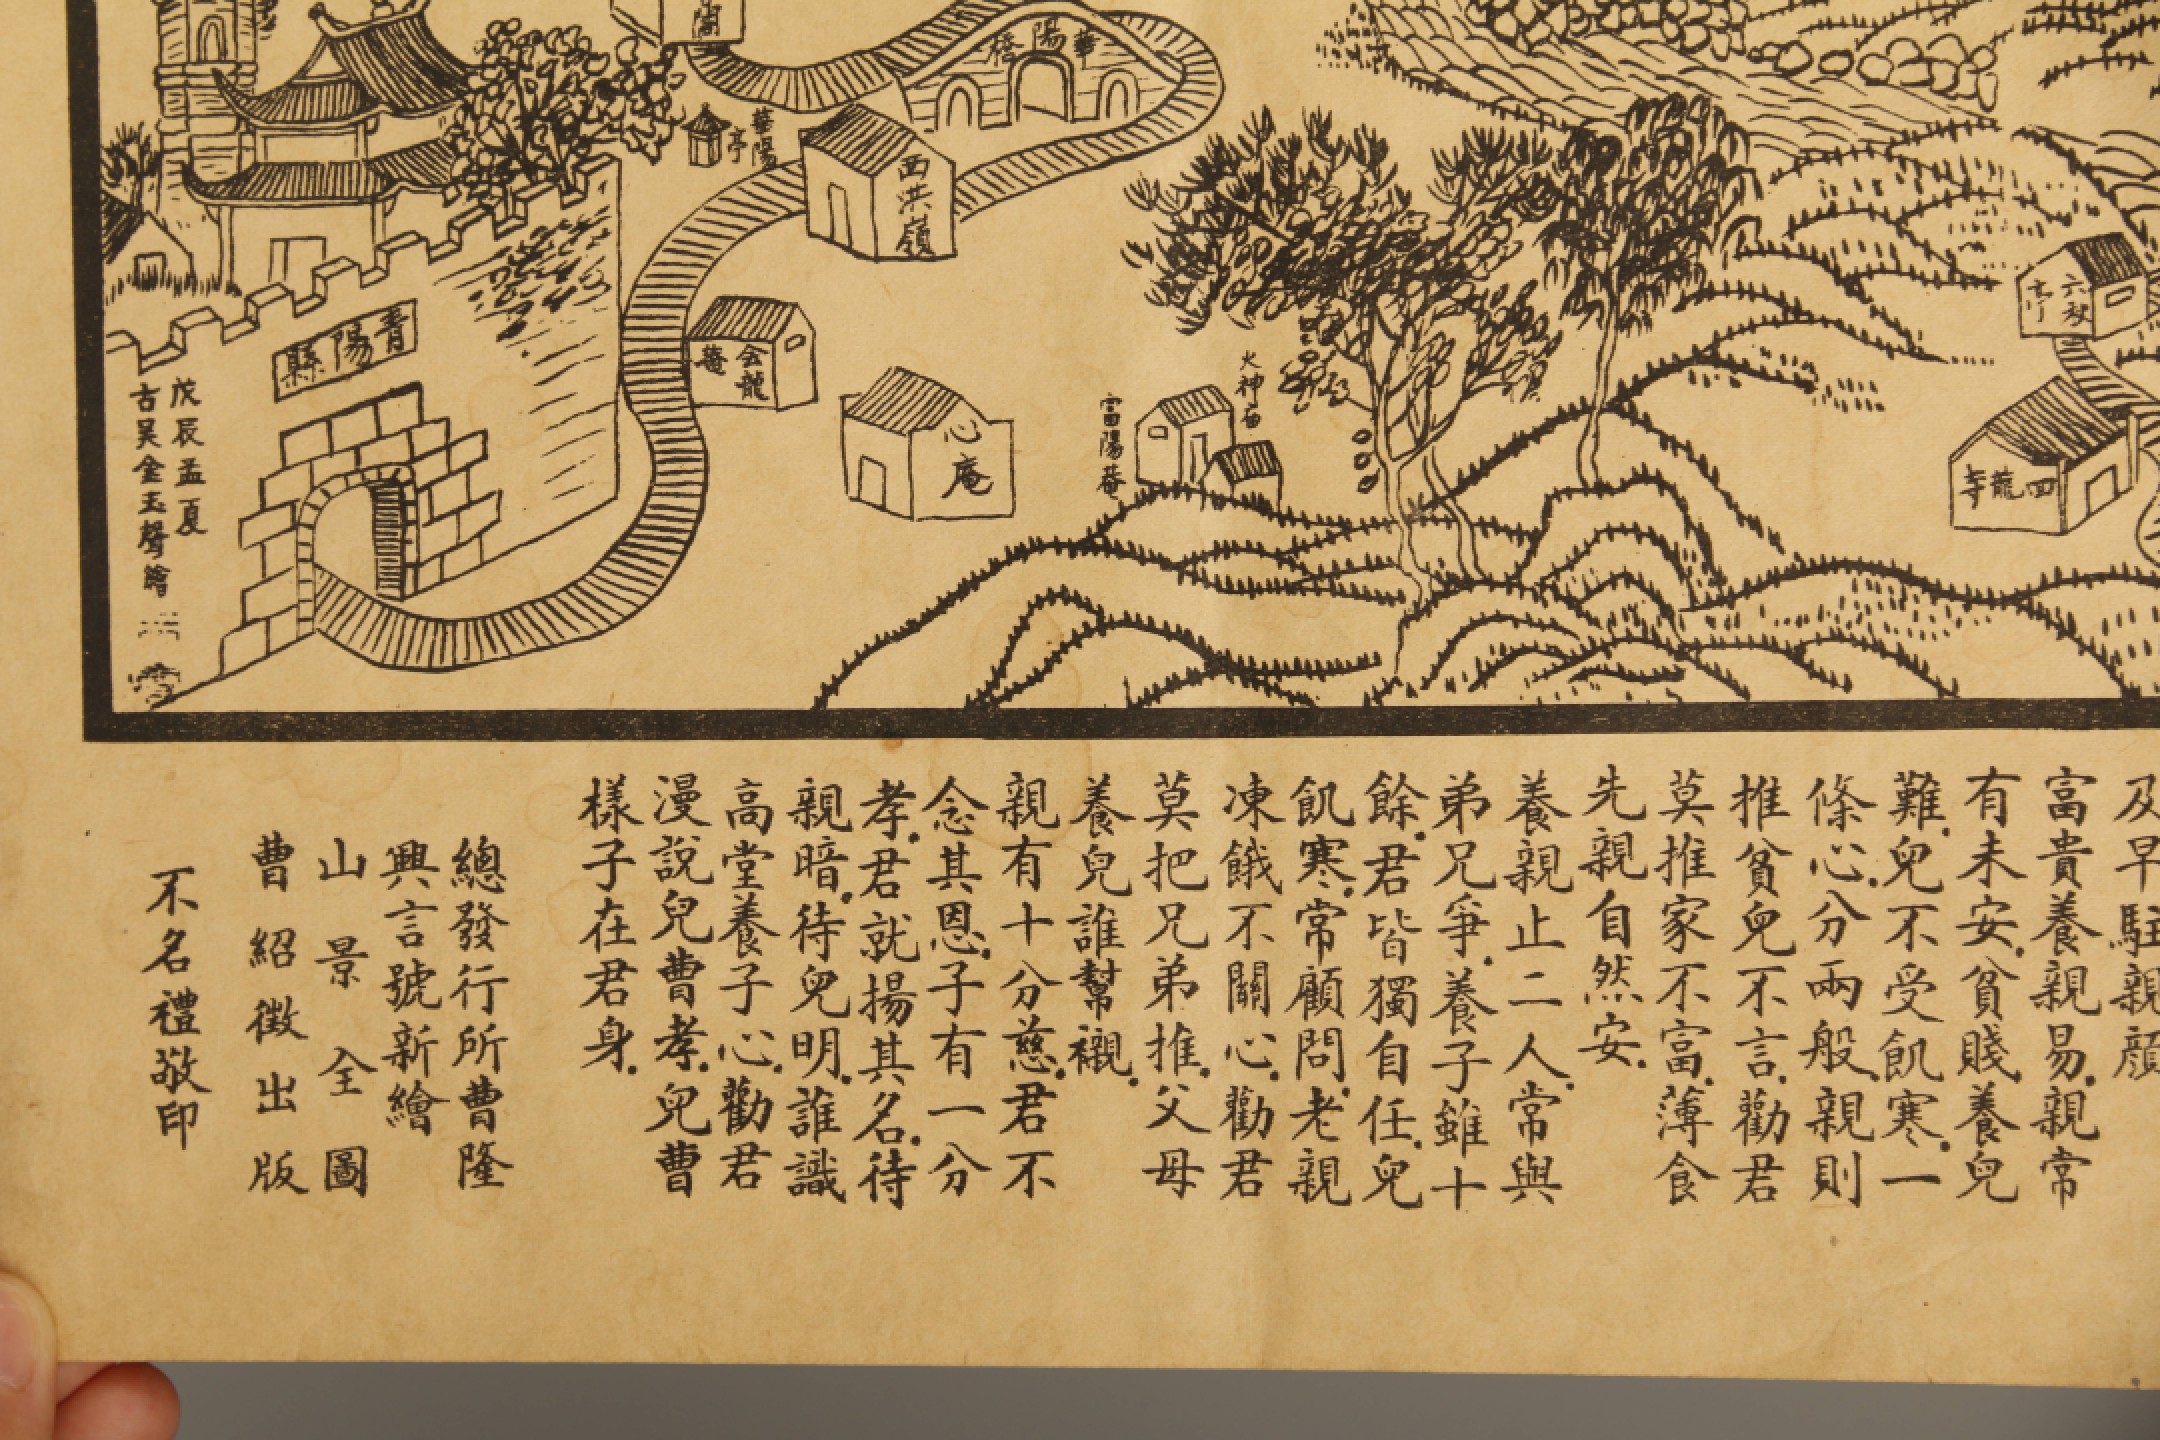 華陽橋
華陽亭
西洪嶺
青陽縣
金龍菴
心庵
富陽菴
火神
六
龍寺
戊辰孟夏
古吳金玉聲繪
及早駐親顔
富貴養親易.親常
有未安.貧賤養兒
難.兒不受飢寒.一
條心.分兩般.親則
推貧兒不言.勸君
莫推家不富.薄食
先親自然安.
養親止二人.常與
弟兄爭.養子雖十
餘.君皆獨自任.兒
飢寒.常顧問.老親
凍餓不關心.勸君
莫把兄弟推.父母
養兒誰幫襯.
親有十分慈.君不
念其恩.子有一分
孝.君就揚其名.待
親暗.待兒明.誰識
高堂養子心.勸君
漫說兒曹孝.兒曹
樣子在君身.
總發行所曹隆
興言號新繪
山景全圖
曹紹徵出版
不名禮敬印